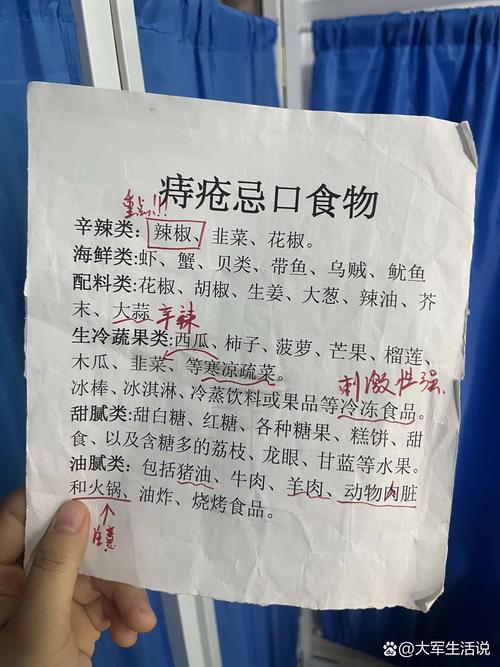 痔疮忌口食物
重点!!!
辛辣类:辣椒、韭菜、花椒。
海鲜类:虾、蟹、贝类、带鱼、乌贼、鱿鱼
配料类:花椒、胡椒、生姜、大葱、辣油、芥
末、大蒜 辛辣
生冷蔬果类:西瓜、柿子、菠萝、芒果、榴莲、
木瓜、韭菜、等寒凉疏菜。
刺激性强
冰棒、冰淇淋、冷蒸饮料或果品等冷冻食品。
甜腻类:甜白糖、红糖、各种糖果、糕饼、甜
食、以及含糖多的荔枝、龙眼、甘蓝等水果。
油腻类:包括猪油、牛肉、羊肉、动物内脏
和火锅、油炸、烧烤食品。
注意
大军生活说